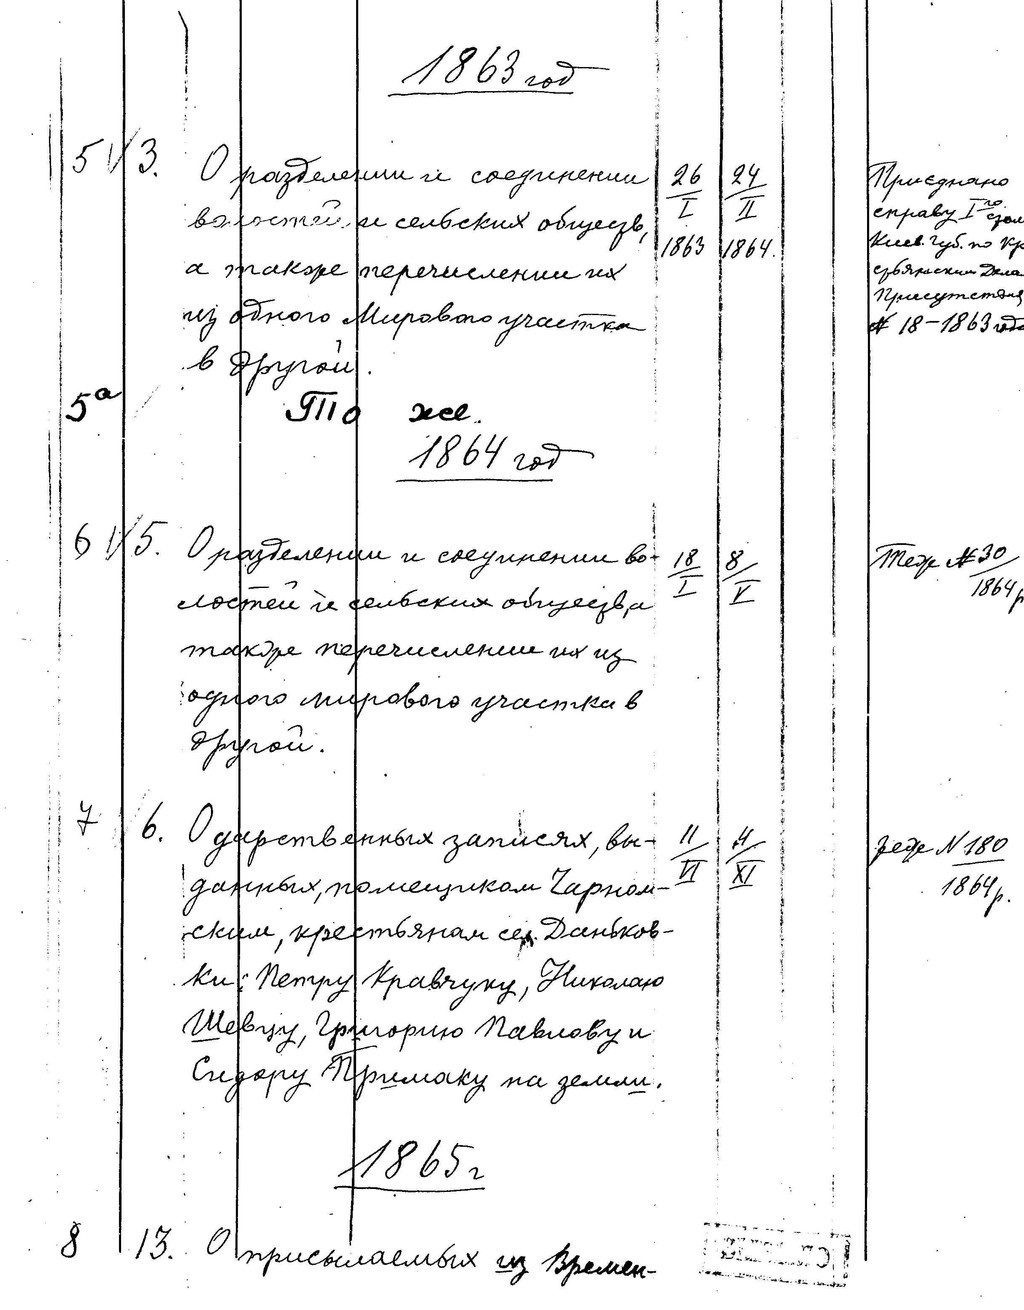 1863 год
5 3. О разделении и соединении 26/I 1863 24/II 1864. Приєднано
волостей и сельских обществ, справу I го
а также перечислении их Киев. Губ. по
из одного Мирового участка Присутствия
в другой. № 18-1863 года
5а То же.
1864 год
6 5. О разделении и соединении во- 18/I 8/V Теж № 30/1864 р
лостей и сельских обществ, а
также перечислении их из
одного мирового участка в
другой.
7 6. О дарственных записях, вы- 11/VI 4/XI теж № 180/1864 р.
данных, помещиком Чарном-
ским, крестьянам сел. Даньков-
ки: Петру Кравчуку, Николаю
Шевцу, Григорию Павлову и
Сидору Примаку на земли.
1865 г
8 13. О присылаемых из Времен-